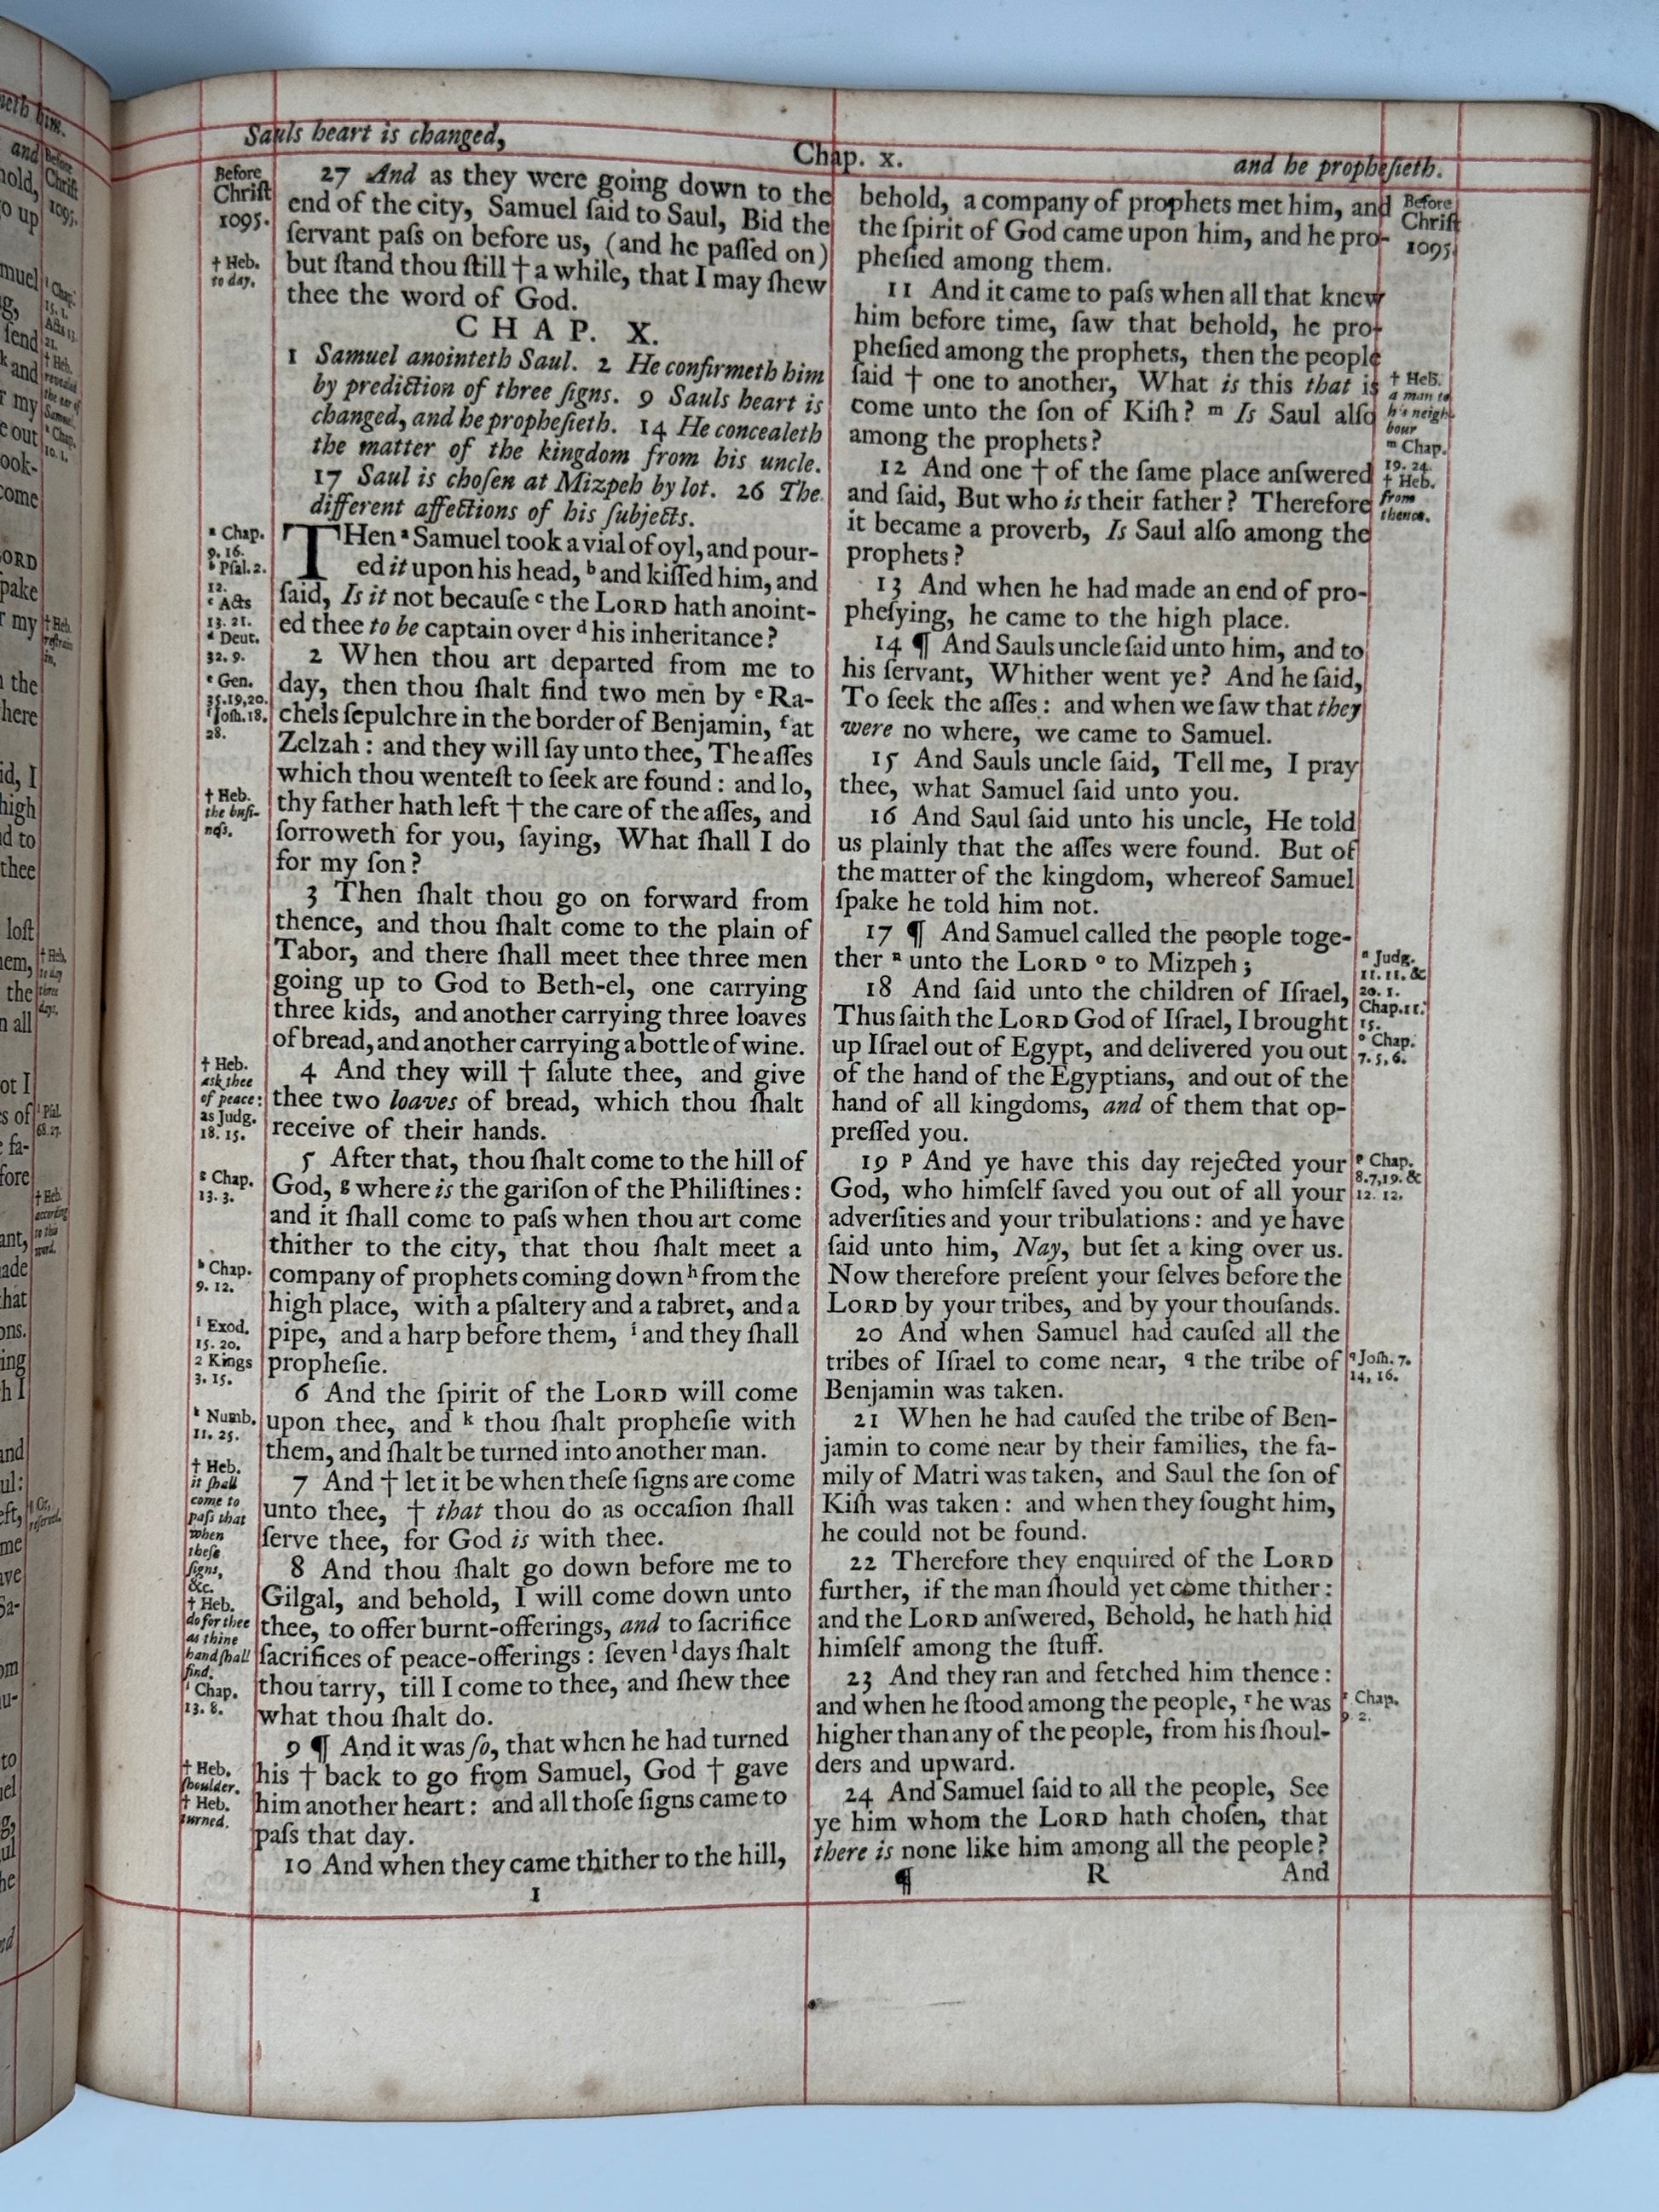 Sauls heart is changed,
Chap. x.
and he propheſieth.
Before
Chriſt
1095.
† Heb.
to day.
27 And as they were going down to the
end of the city, Samuel ſaid to Saul, Bid the
ſervant paſs on before us, (and he paſſed on)
but ſtand thou ſtill † a while, that I may ſhew
thee the word of God.
CHAP. X.
1 Samuel anointeth Saul. 2 He confirmeth him
by prediction of three ſigns. 9 Sauls heart is
changed, and he propheſieth. 14 He concealeth
the matter of the kingdom from his uncle.
17 Saul is choſen at Mizpeh by lot. 26 The
different affections of his ſubjects.
ᵃ Chap.
9. 16.
ᵇ Pſal. 2.
12.
ᶜ Acts
13. 21.
ᵈ Deut.
32. 9.
ᵉ Gen.
35.19,20.
ᶠ Joſh. 18.
28.
† Heb.
the buſi-
neſs.
† Heb.
ask thee
of peace:
as Judg.
18. 15.
ᵍ Chap.
13. 3.
ʰ Chap.
9. 12.
ⁱ Exod.
15. 20.
2 Kings
3. 15.
ᵏ Numb.
11. 25.
† Heb.
it ſhall
come to
paſs that
when
theſe
ſigns,
&c.
† Heb.
do for thee
as thine
hand ſhall
find.
ˡ Chap.
13. 8.
† Heb.
ſhoulder.
† Heb.
turned.
THen ᵃ Samuel took a vial of oyl, and pour-
ed it upon his head, ᵇ and kiſſed him, and
ſaid, Is it not becauſe ᶜ the LORD hath anoint-
ed thee to be captain over ᵈ his inheritance?
2 When thou art departed from me to
day, then thou ſhalt find two men by ᵉ Ra-
chels ſepulchre in the border of Benjamin, ᶠ at
Zelzah: and they will ſay unto thee, The aſſes
which thou wenteſt to ſeek are found: and lo,
thy father hath left † the care of the aſſes, and
ſorroweth for you, ſaying, What ſhall I do
for my ſon?
3 Then ſhalt thou go on forward from
thence, and thou ſhalt come to the plain of
Tabor, and there ſhall meet thee three men
going up to God to Beth-el, one carrying
three kids, and another carrying three loaves
of bread, and another carrying a bottle of wine.
4 And they will † ſalute thee, and give
thee two loaves of bread, which thou ſhalt
receive of their hands.
5 After that, thou ſhalt come to the hill of
God, ᵍ where is the gariſon of the Philiſtines:
and it ſhall come to paſs when thou art come
thither to the city, that thou ſhalt meet a
company of prophets coming down ʰ from the
high place, with a pſaltery and a tabret, and a
pipe, and a harp before them, ⁱ and they ſhall
propheſie.
6 And the ſpirit of the LORD will come
upon thee, and ᵏ thou ſhalt propheſie with
them, and ſhalt be turned into another man.
7 And † let it be when theſe ſigns are come
unto thee, † that thou do as occaſion ſhall
ſerve thee, for God is with thee.
8 And thou ſhalt go down before me to
Gilgal, and behold, I will come down unto
thee, to offer burnt-offerings, and to ſacrifice
ſacrifices of peace-offerings: ſeven ˡ days ſhalt
thou tarry, till I come to thee, and ſhew thee
what thou ſhalt do.
9 ¶ And it was ſo, that when he had turned
his † back to go from Samuel, God † gave
him another heart: and all thoſe ſigns came to
paſs that day.
10 And when they came thither to the hill,
I
behold, a company of prophets met him, and
the ſpirit of God came upon him, and he pro-
pheſied among them.
11 And it came to paſs when all that knew
him before time, ſaw that behold, he pro-
pheſied among the prophets, then the people
ſaid † one to another, What is this that is
come unto the ſon of Kiſh? ᵐ Is Saul alſo
among the prophets?
12 And one † of the ſame place anſwered
and ſaid, But who is their father? Therefore
it became a proverb, Is Saul alſo among the
prophets?
13 And when he had made an end of pro-
pheſying, he came to the high place.
14 ¶ And Sauls uncle ſaid unto him, and to
his ſervant, Whither went ye? And he ſaid,
To ſeek the aſſes: and when we ſaw that they
were no where, we came to Samuel.
15 And Sauls uncle ſaid, Tell me, I pray
thee, what Samuel ſaid unto you.
16 And Saul ſaid unto his uncle, He told
us plainly that the aſſes were found. But of
the matter of the kingdom, whereof Samuel
ſpake he told him not.
17 ¶ And Samuel called the people toge-
ther ⁿ unto the LORD ᵒ to Mizpeh;
18 And ſaid unto the children of Iſrael,
Thus ſaith the LORD God of Iſrael, I brought
up Iſrael out of Egypt, and delivered you out
of the hand of the Egyptians, and out of the
hand of all kingdoms, and of them that op-
preſſed you.
19 ᵖ And ye have this day rejected your
God, who himſelf ſaved you out of all your
adverſities and your tribulations: and ye have
ſaid unto him, Nay, but ſet a king over us.
Now therefore preſent your ſelves before the
LORD by your tribes, and by your thouſands.
20 And when Samuel had cauſed all the
tribes of Iſrael to come near, ᑫ the tribe of
Benjamin was taken.
21 When he had cauſed the tribe of Ben-
jamin to come near by their families, the fa-
mily of Matri was taken, and Saul the ſon of
Kiſh was taken: and when they ſought him,
he could not be found.
22 Therefore they enquired of the LORD
further, if the man ſhould yet come thither:
and the LORD anſwered, Behold, he hath hid
himſelf among the ſtuff.
23 And they ran and fetched him thence:
and when he ſtood among the people, ʳ he was
higher than any of the people, from his ſhoul-
ders and upward.
24 And Samuel ſaid to all the people, See
ye him whom the LORD hath choſen, that
there is none like him among all the people?
¶ R And
Before
Chriſt
1095.
† Heb.
a man to
his neigh-
bour
ᵐ Chap.
19. 24.
† Heb.
from
thence.
ⁿ Judg.
11. 11. &
20. 1.
Chap.11.
15.
ᵒ Chap.
7. 5, 6.
ᵖ Chap.
8.7,19. &
12. 12.
ᑫ Joſh. 7.
14, 16.
ʳ Chap.
9. 2.